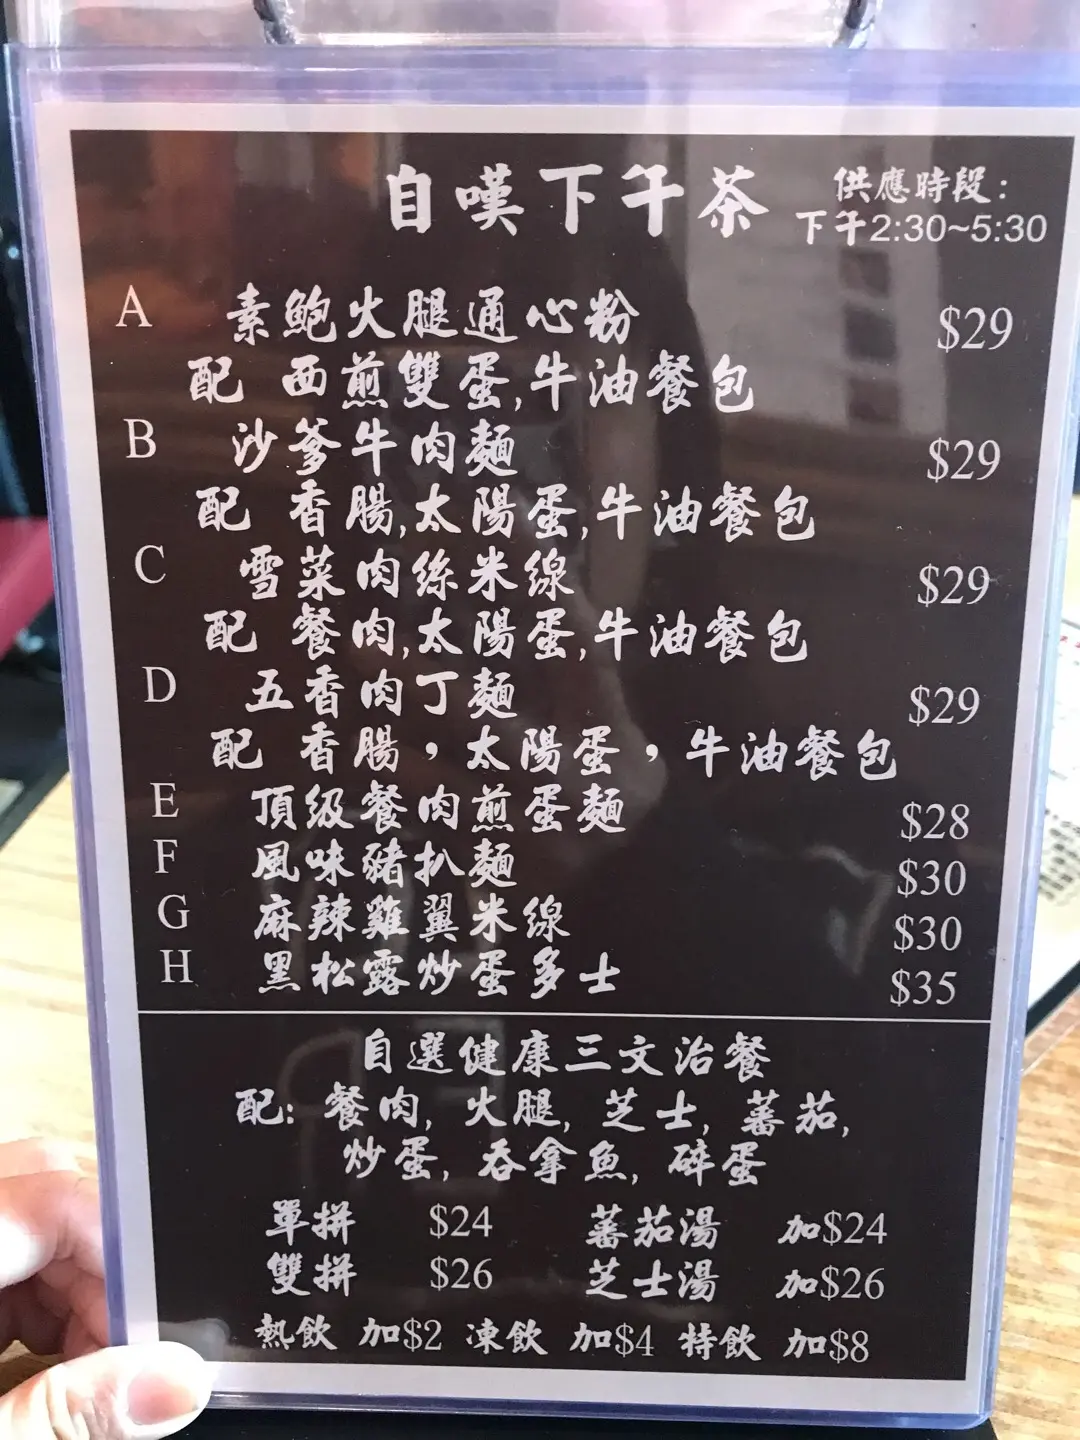 自嘆下午茶
供應時段：
下午2:30~5:30
A 素鮑火腿通心粉 $29
配 西煎雙蛋,牛油餐包
B 沙爹牛肉麵 $29
配 香腸,太陽蛋,牛油餐包
C 雪菜肉絲米線 $29
配 餐肉,太陽蛋,牛油餐包
D 五香肉丁麵 $29
配 香腸，太陽蛋，牛油餐包
E 頂級餐肉煎蛋麵 $28
F 風味豬扒麵 $30
G 麻辣雞翼米線 $30
H 黑松露炒蛋多士 $35
自選健康三文治餐
配: 餐肉, 火腿, 芝士, 蕃茄,
炒蛋, 吞拿魚, 碎蛋
單拼 $24 蕃茄湯 加$24
雙拼 $26 芝士湯 加$26
熱飲 加$2 凍飲 加$4 特飲 加$8